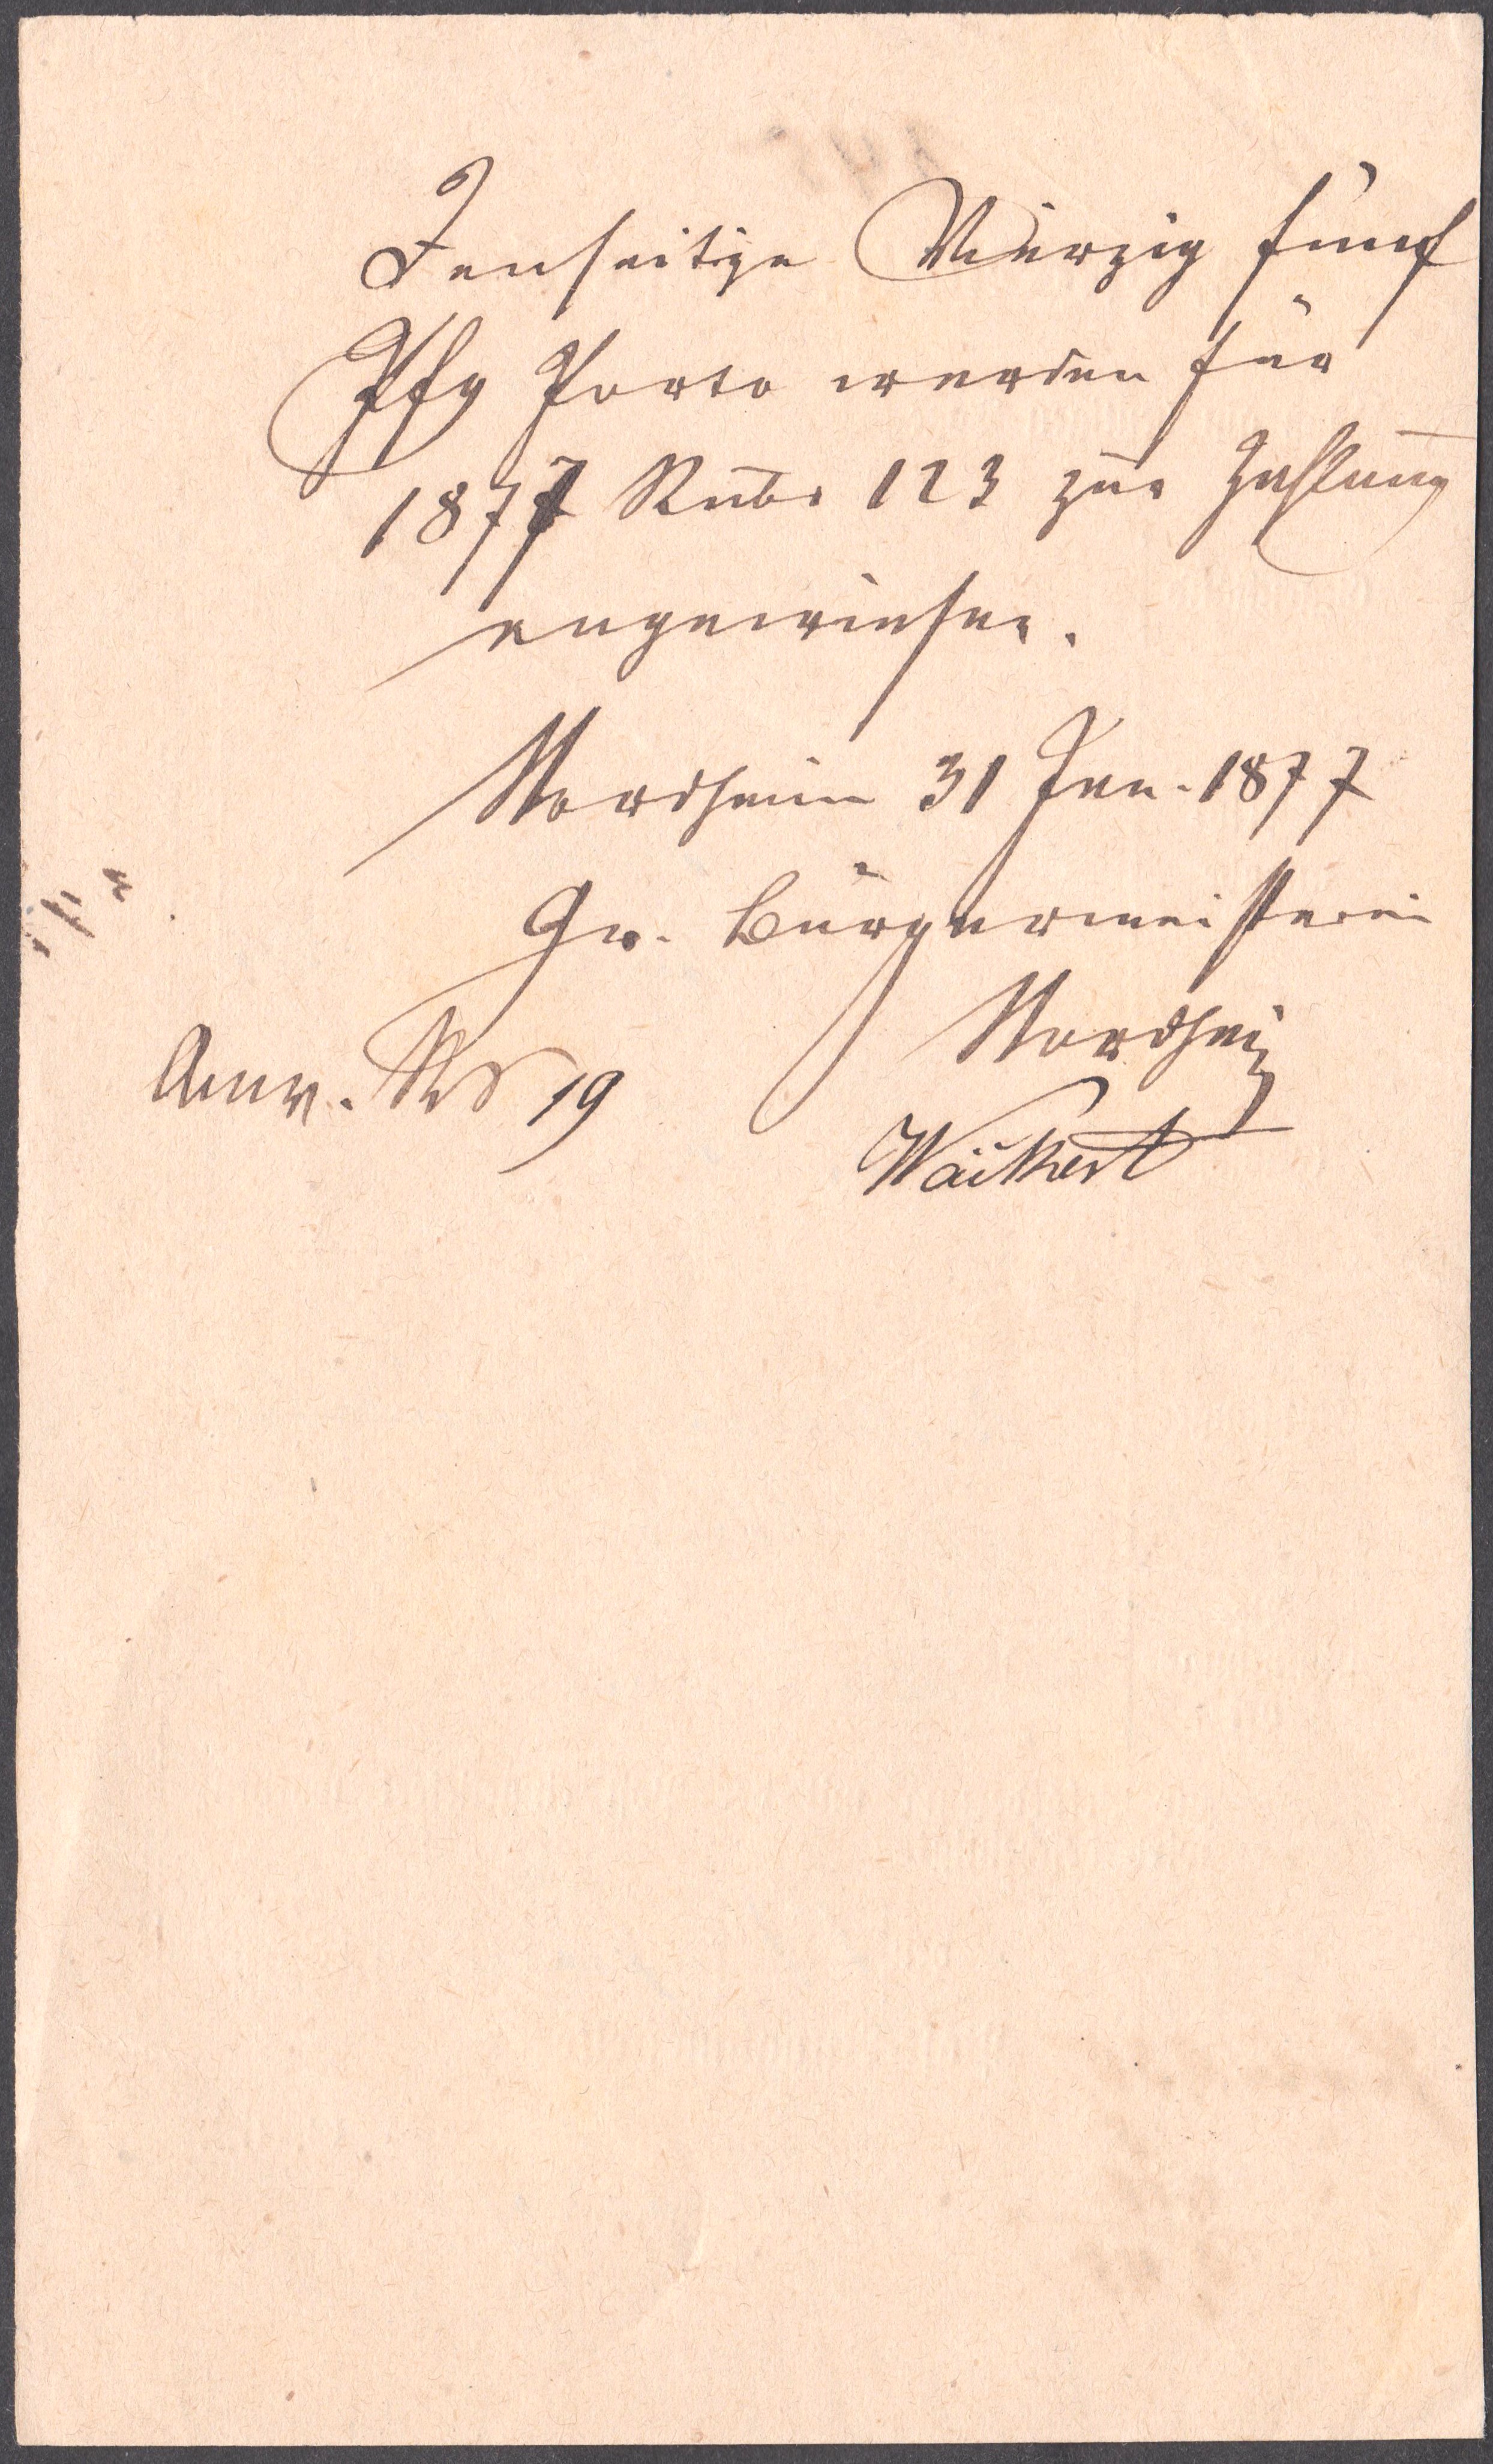 Jenseitige Vierzig fünf
Pfg Porto werden für
1877 Rubr 123 zur Zahlung
angewiesen.
Nordheim 31 Jan. 1877
Gr. Bürgermeisterei
Nordheim
Anw. No 19